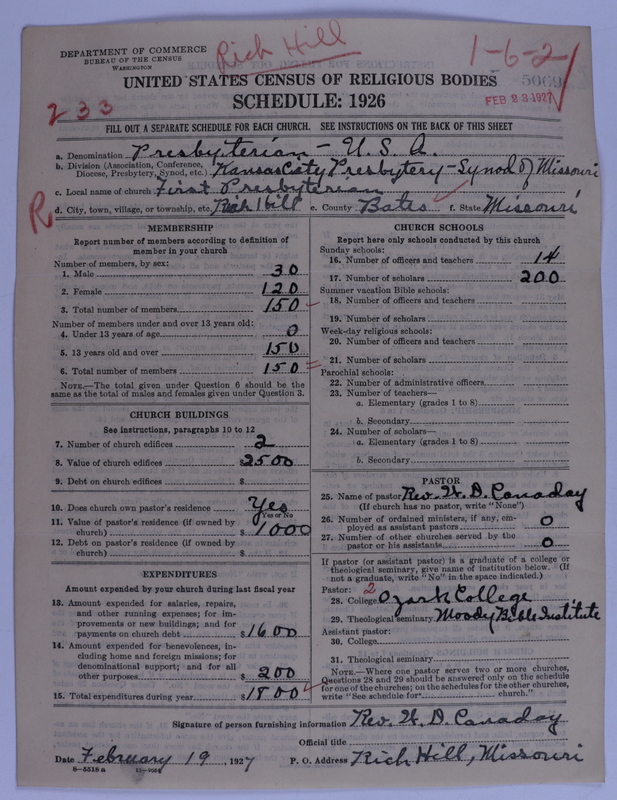 DEPARTMENT OF COMMERCE
BUREAU OF THE CENSUS
WASHINGTON
Rich Hill
1-6-21
5069
FEB 23 1927
UNITED STATES CENSUS OF RELIGIOUS BODIES
SCHEDULE: 1926
233
FILL OUT A SEPARATE SCHEDULE FOR EACH CHURCH. SEE INSTRUCTIONS ON THE BACK OF THIS SHEET
a. Denomination Presbyterian - U. S. A.
b. Division (Association, Conference, Diocese, Presbytery, Synod, etc.) Kansas City Presbytery - Synod of Missouri
c. Local name of church First Presbyterian
R
d. City, town, village, or township, etc. Rich Hill e. County Bates f. State Missouri
MEMBERSHIP
Report number of members according to definition of
member in your church
Number of members, by sex:
1. Male 30
2. Female 120
3. Total number of members 150
Number of members under and over 13 years old:
4. Under 13 years of age 0
5. 13 years old and over 150
6. Total number of members 150
NOTE.—The total given under Question 6 should be the
same as the total of males and females given under Question 3.
CHURCH BUILDINGS
See instructions, paragraphs 10 to 12
7. Number of church edifices 2
8. Value of church edifices $2500
9. Debt on church edifices $
10. Does church own pastor's residence Yes
Yes or No
11. Value of pastor's residence (if owned by
church) $1000
12. Debt on pastor's residence (if owned by
church) $
EXPENDITURES
Amount expended by your church during last fiscal year
13. Amount expended for salaries, repairs,
and other running expenses; for im-
provements or new buildings; and for
payments on church debt $1600
14. Amount expended for benevolences, in-
cluding home and foreign missions; for
denominational support; and for all
other purposes $200
15. Total expenditures during year $1800
CHURCH SCHOOLS
Report here only schools conducted by this church
Sunday schools:
16. Number of officers and teachers 14
17. Number of scholars 200
Summer vacation Bible schools:
18. Number of officers and teachers
19. Number of scholars
Week-day religious schools:
20. Number of officers and teachers
21. Number of scholars
Parochial schools:
22. Number of administrative officers
23. Number of teachers—
a. Elementary (grades 1 to 8)
b. Secondary
24. Number of scholars—
a. Elementary (grades 1 to 8)
b. Secondary
PASTOR
25. Name of pastor Rev. W. D. Canaday
(If church has no pastor, write "None")
26. Number of ordained ministers, if any, em-
ployed as assistant pastors 0
27. Number of other churches served by the
pastor or his assistants 0
If pastor (or assistant pastor) is a graduate of a college or
theological seminary, give name of institution below. (If
not a graduate, write "No" in the space indicated.)
Pastor: 2
28. College Ozark College
29. Theological seminary Moody Bible Institute
Assistant pastor:
30. College
31. Theological seminary
NOTE.—Where one pastor serves two or more churches,
Questions 28 and 29 should be answered only on the schedule
for one of the churches; on the schedules for the other churches,
write "See schedule for church."
Signature of person furnishing information Rev. W. D. Canaday
Official title
Date February 19, 1927 P. O. Address Rich Hill, Missouri
8-5518 a